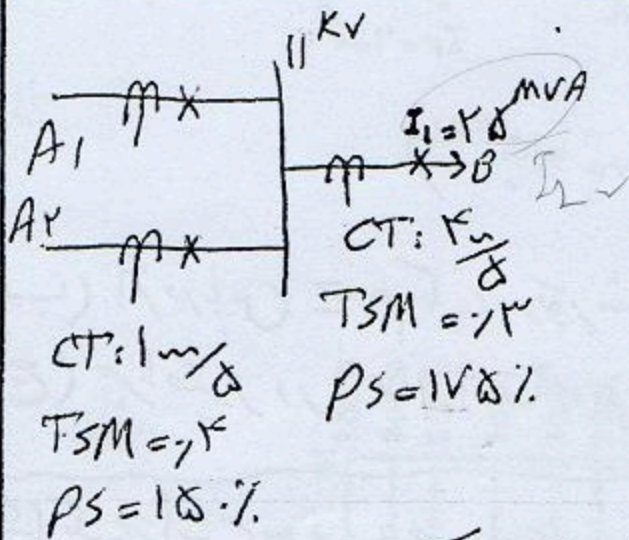 11 KV
I₁ = ۲۵ MVA
A۱
B
I₂
A۲
CT: ۴۰۰/۵
TSM = ۰٫۳
PS = ۱۷۵٪
CT: ۱۰۰۰/۵
TSM = ۰٫۴
PS = ۱۵۰٪